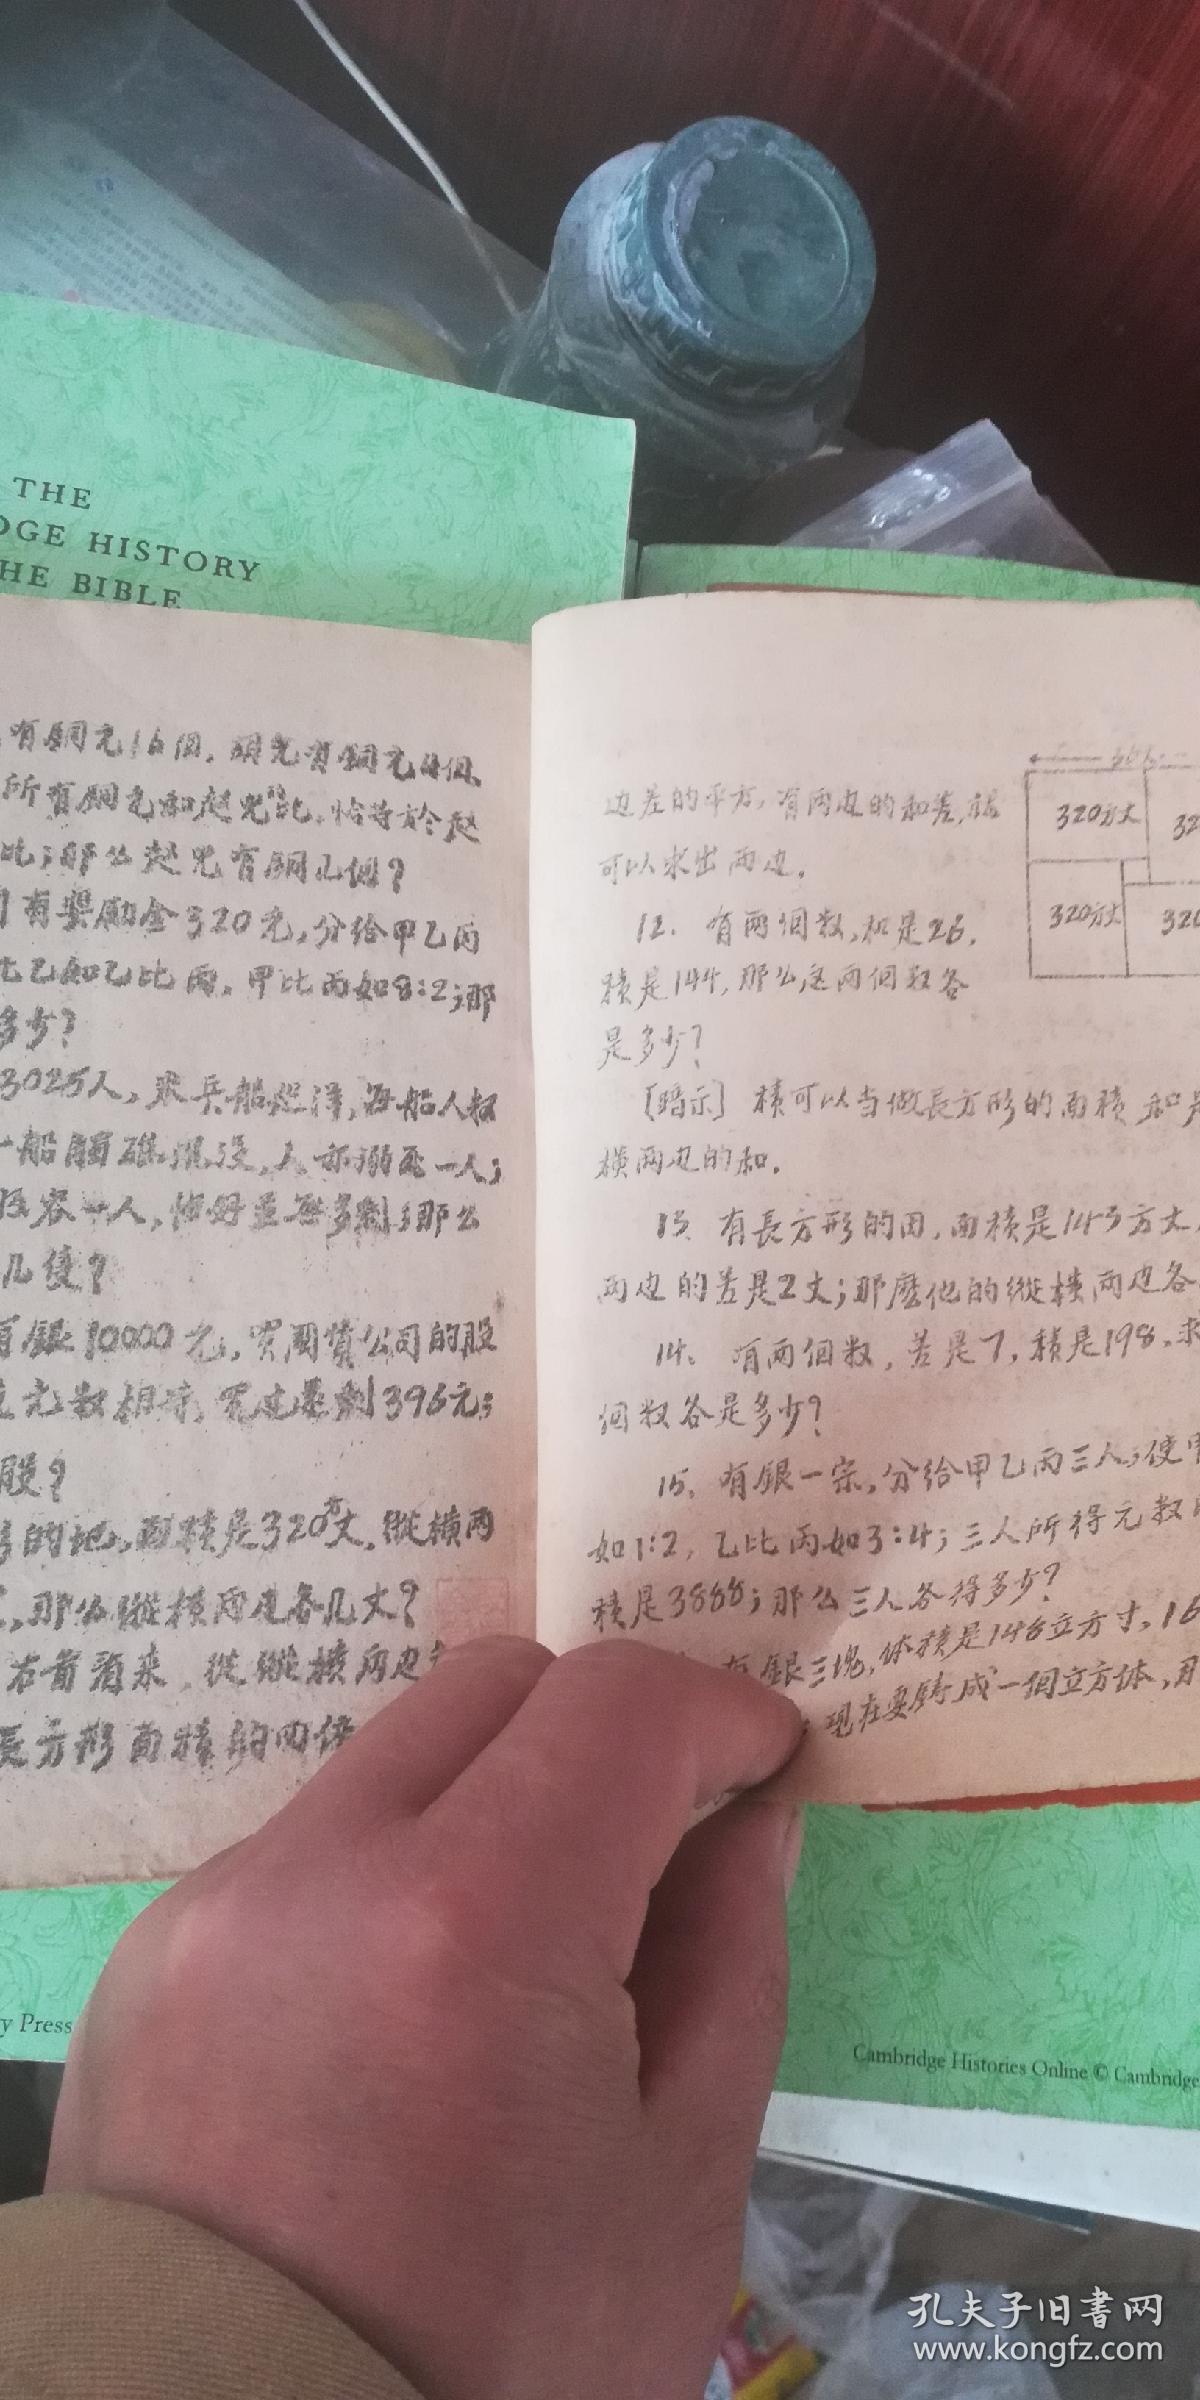 THE
DGE HISTORY
HE BIBLE
有銅元16個，朋兄有銅元4個、
所有銅元和赵兄比，恰等於赵
比；那么赵兄有銅几個？
有奬励金320元，分给甲乙丙
乙如乙比丙，甲比丙如8:2；那
多少？
3025人，乘兵船出洋，每船人
一船觸礁沉没，人亦溺死一人；
容一人，恰好並無多剩；那么
几
銀10000元，買國貨公司的股
元数相等，買过还剩396元；
股？
的地，面積是320方丈，縱横两
，那么縱横两边各几丈？
右首看来，從縱横两边
長方形面積的四倍
边差的平方，有两边的和差，就
可以求出两边。
320方丈
32
320方丈
320
12. 有兩個数，和是26，
積是144，那么这两個数各
是多少？
[暗示] 積可以当做長方形的面積 和是
横两边的和。
13. 有長方形的田，面積是143方丈，
两边的差是2丈；那麽他的縱横两边各
14. 有两個数，差是7，積是198，求
個数各是多少？
15. 有銀一宗，分给甲乙丙三人；使甲
如1:2，乙比丙如3:4；三人所得元数
積是3888；那么三人各得多少？
有銀三塊，体積是148立方寸，16
；現在要鑄成一個立方体，
y Press
Cambridge Histories Online © Cambridge
孔夫子旧書网
www.kongfz.com